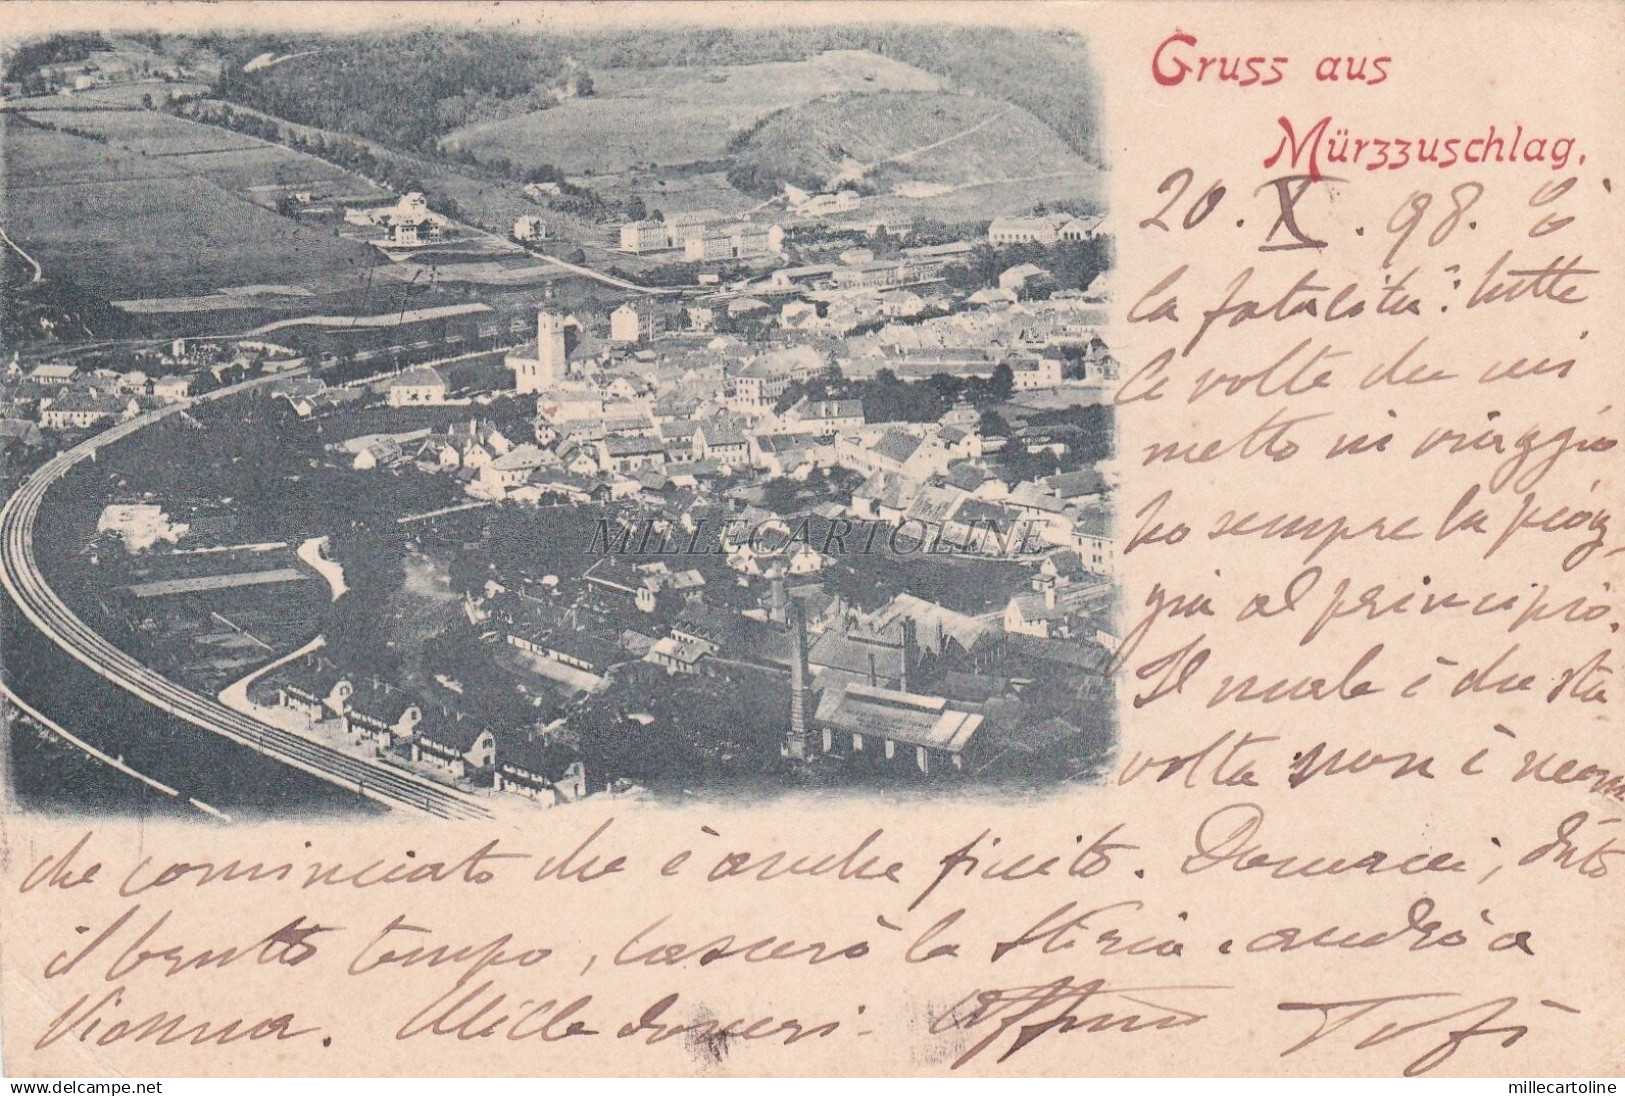 Gruss aus
Mürzzuschlag.
20. X. 98. È
la fatalità: tutte
le volte che mi
metto in viaggio
ho sempre la piog-
gia al principio.
Il male è che sta
volta non è nean
che cominciato che è anche finito. Domani, dato
il brutto tempo, lascerò la Stiria e andrò a
Vienna. Mille doveri. Affmo
MILLECARTOLINE
millecartoline
www.delcampe.net